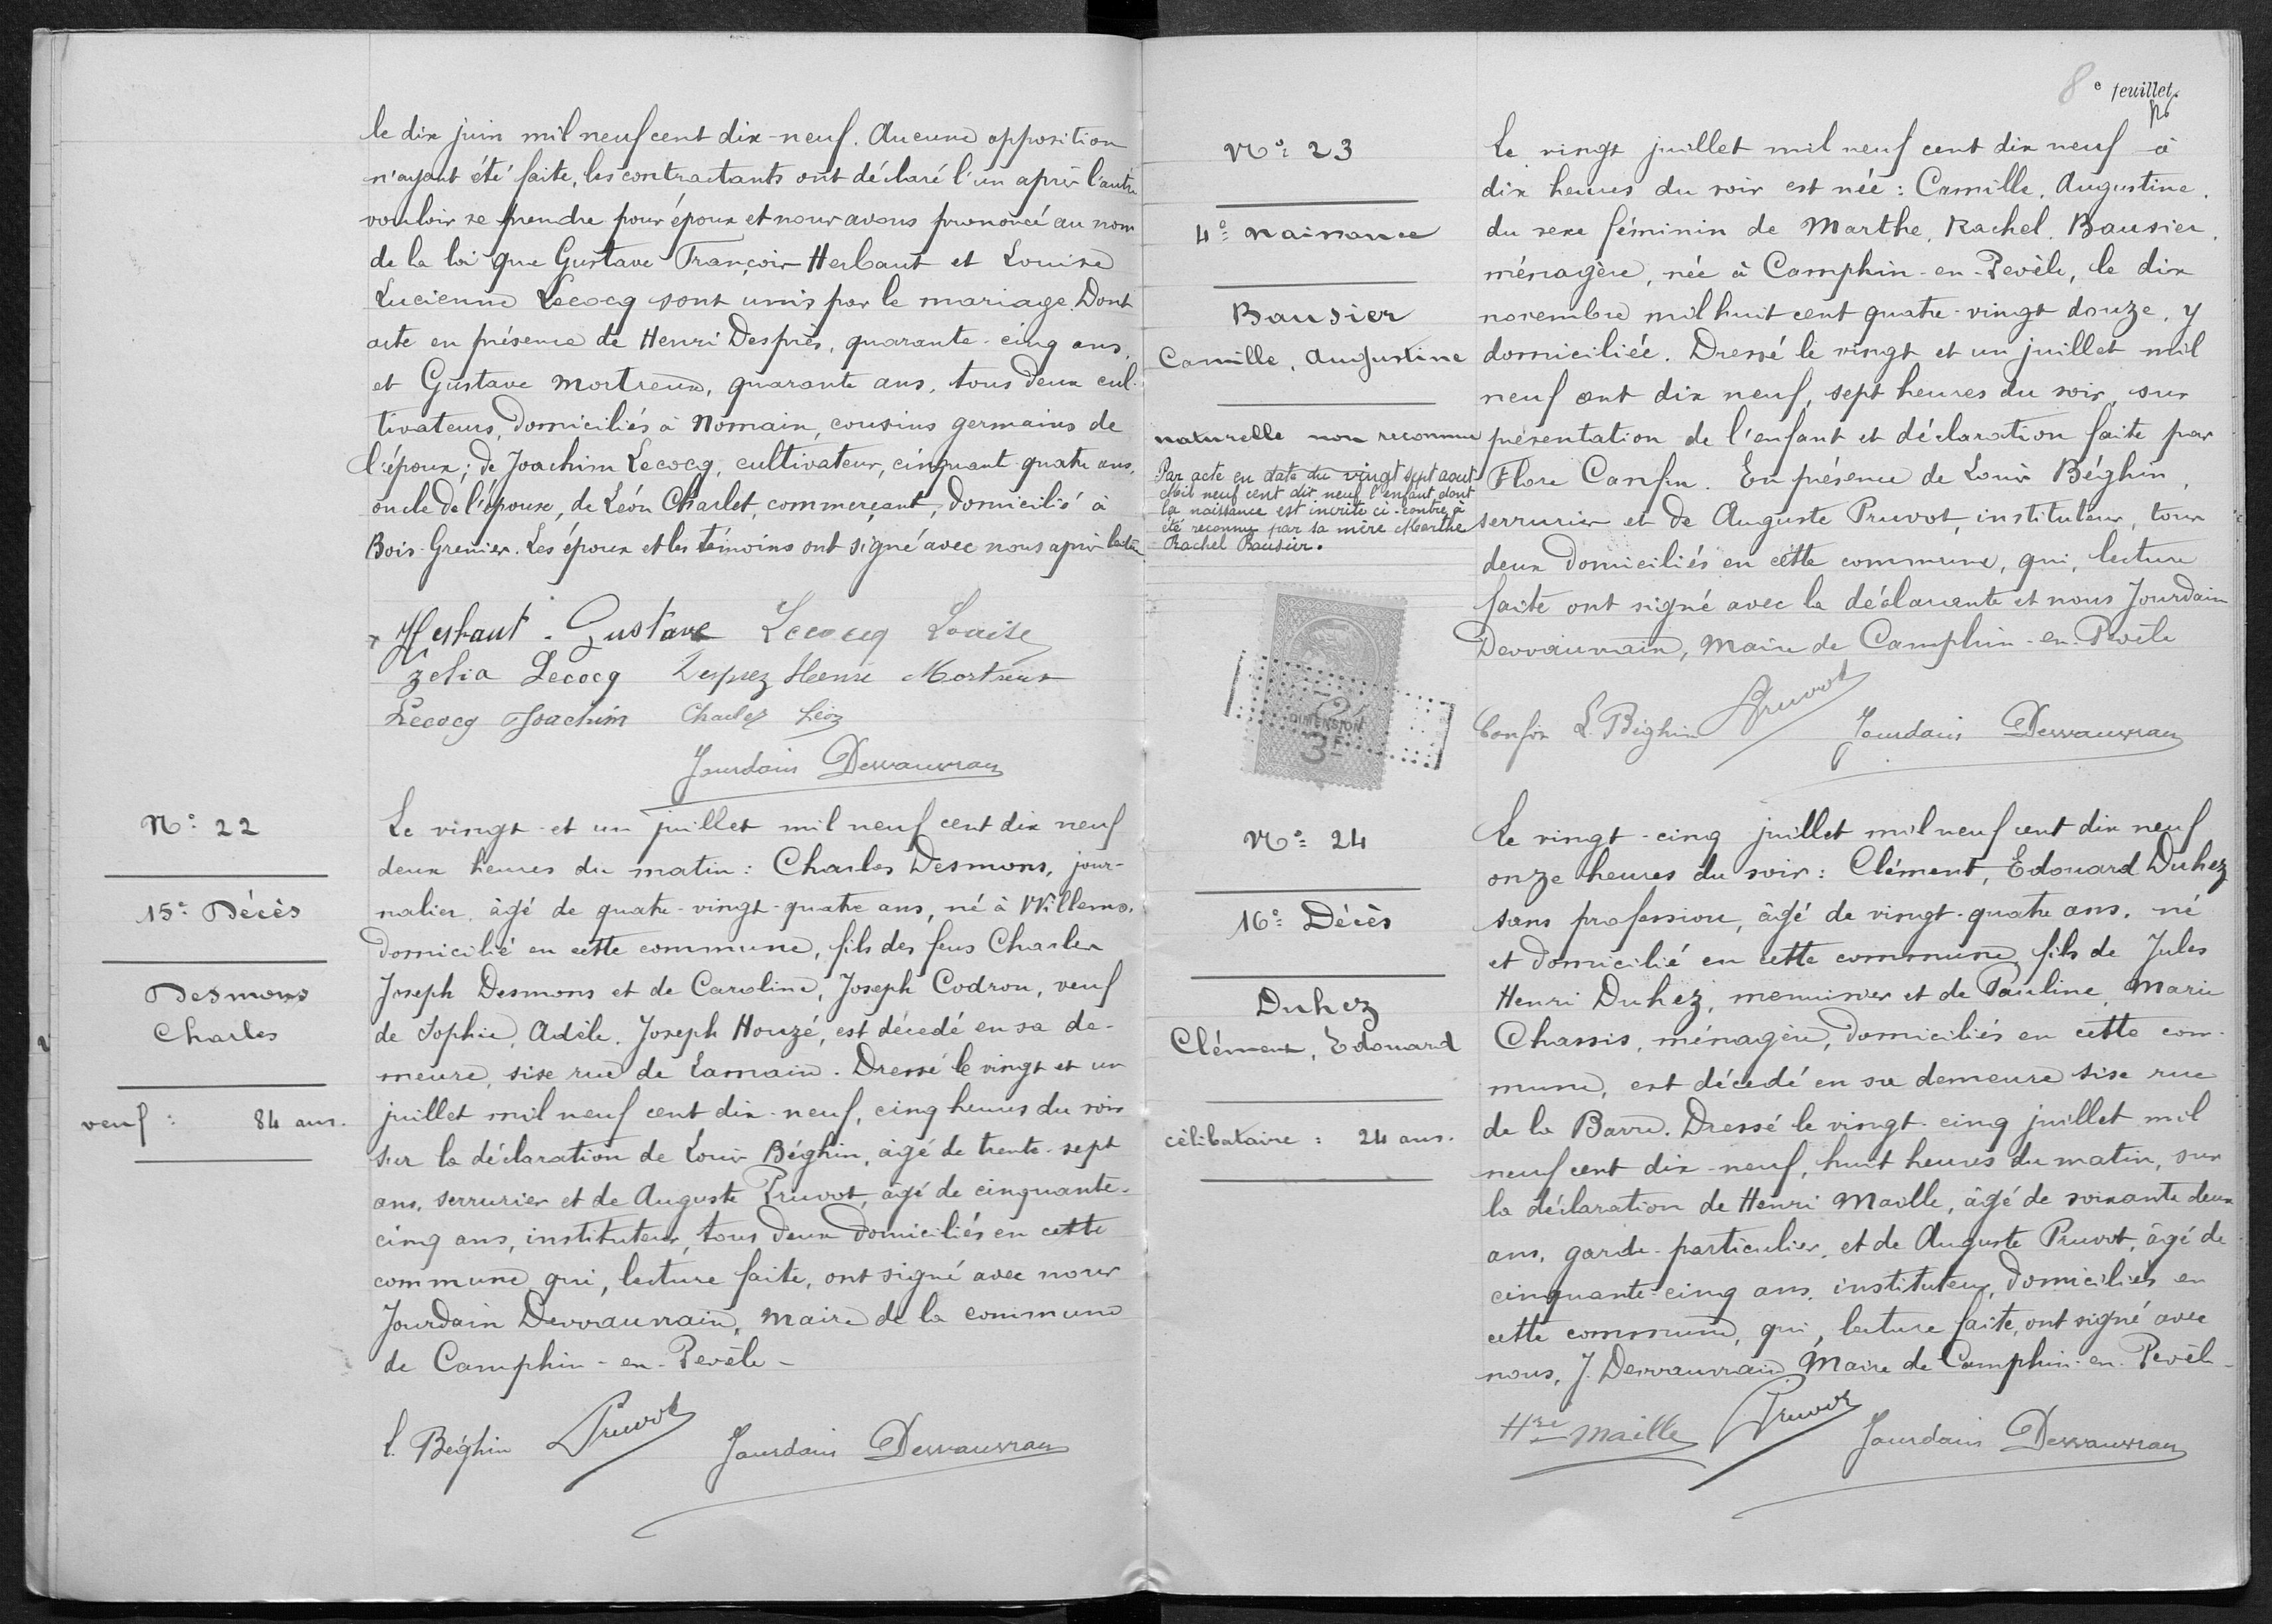 le dix juin mil neuf cent dix-neuf. Aucune opposition
n'ayant été faite, les contractants ont déclaré l'un après l'autre
vouloir se prendre pour époux et nous avons prononcé au nom
de la loi que Gustave François Herbaut et Louise
Lucienne Lecocq sont unis par le mariage. Dont
acte en présence de Henri Desprès, quarante-cinq ans,
et Gustave Mortreux, quarante ans, tous deux cul-
tivateurs, domiciliés à Nomain, cousins germains de
l'époux; de Joachim Lecocq, cultivateur, cinquant-quatre ans,
oncle de l'épouse, de Léon Charlet, commerçant, domicilié à
Bois-Grenier. Les époux et les témoins ont signé avec nous après
Herbaut Gustave Lecocq Louise
Zelia Lecocq Desprez Henri Mortreux
Lecocq Joachim Charlet Léon
Jourdain Dervauvrain
N° 22
15e Décès
Desmons
Charles
veuf : 84 ans.
Le vingt-et un juillet mil neuf cent dix neuf
deux heures du matin : Charles Desmons, jour-
nalier, âgé de quatre-vingt-quatre ans, né à Willems,
domicilié en cette commune, fils des feus Charles
Joseph Desmons et de Caroline, Joseph Codron, veuf
de Sophie, Adèle, Joseph Houzé, est décedé en sa de-
meure, sise rue de Lamain. Dressé le vingt et un
juillet mil neuf cent dix-neuf, cinq heures du soir
sur la déclaration de Louis Béghin, âgé de trente-sept
ans, serrurier et de Auguste Pruvot, âgé de cinquante-
cinq ans, instituteur, tous deux domiciliés en cette
commune qui, lecture faite, ont signé avec nous
Jourdain Dervauvrain, Maire de la commune
de Camphin-en-Pevèle-
L. Béghin Pruvot Jourdain Dervauvrain
8e feuillet.
N° 23
4e Naissance
Bausier
Camille, Augustine
naturelle non reconnue
Par acte en date du vingt sept aout
Mil neuf cent dix neuf l'enfant dont
la naissance est incrite ci-contre à
été reconnu par sa mère Marthe
Rachel Bausier.
2
DIMENSION
3F
Le vingt juillet mil neuf cent dix neuf à
dix heures du soir est née : Camille, Augustine,
du sexe féminin de Marthe, Rachel, Bausier,
ménagère, née à Camphin-en-Pevèle, le dix
novembre mil huit cent quatre-vingt douze, y
domiciliée. Dressé le vingt et un juillet mil
neuf cent dix neuf, sept heures du soir, sur
présentation de l'enfant et déclaration faite par
Flore Canfin. En présence de Louis Béghin,
serrurier et de Auguste Pruvot, instituteur, tous
deux domiciliés en cette commune, qui, lecture
faite ont signé avec la déclarante et nous Jourdain
Dervauvrain, Maire de Camphin-en-Pevèle
Canfin L. Béghin Pruvot Jourdain Dervauvrain
N° 24
16e Décès
Duhez
Clément, Edouard
célibataire : 24 ans.
Le vingt-cinq juillet mil neuf cent dix neuf
onze heures du soir : Clément, Edouard Duhez
sans profession, âgé de vingt-quatre ans, né
et domicilié en cette commune, fils de Jules
Henri Duhez, menuisier et de Pauline, Marie
Chassis, ménagère, domiciliés en cette com-
mune, est décedé en sa demeure sise rue
de la Barre. Dressé le vingt-cinq juillet mil
neuf cent dix-neuf, huit heures du matin, sur
la déclaration de Henri Maille, âgé de soixante deux
ans, garde-particulier, et de Auguste Pruvot, âgé de
cinquante-cinq ans, instituteur, domiciliés en
cette commune, qui, lecture faite, ont signé avec
nous, J. Dervauvrain Maire de Camphin-en-Pevèle-
Hri Maille Pruvot Jourdain Dervauvrain